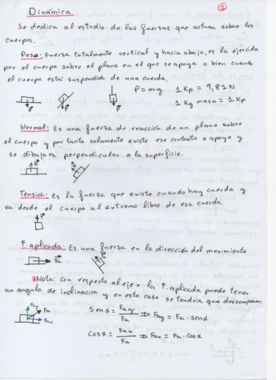 Dinámica ①
Se dedica al estudio de las fuerzas que actuan sobre los
cuerpos.
Peso: Fuerza totalmente vertical y hacia abajo, es la ejercida
por el cuerpo sobre el plano en el que se apoya o bien cuando
el cuerpo está suspendido de una cuerda.
P = m·g 1 Kp = 9,81 N
1 Kg masa = 1 Kp
Normal: Es una fuerza de reacción de un plano sobre
el cuerpo y por tanto solamente existe si existe contacto o apoyo y
se dibujara perpendicular a la superficie.
Tensión: Es la fuerza que existe cuando hay cuerda y
va desde el cuerpo al extremo libre de esa cuerda.
F. aplicada: Es una fuerza en la dirección del movimiento
*Nota: Con respecto al eje x la F. aplicada puede tener
un angulo de inclinación y en este caso se tendria que descomponer
Sen α = Fay/Fa ⇒ Fay = Fa · sen α
Cos α = Fax/Fa ⇒ Fax = Fa · Cos α